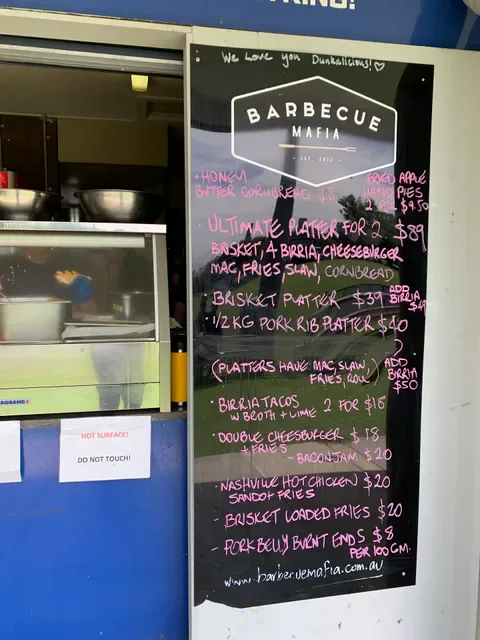 We Love you Dunkalicious!
BARBECUE
MAFIA
EST. 2013
• HONEY
BUTTER CORNBREAD $8
FRIED APPLE
HAND PIES
2 FOR $9.50
ULTIMATE PLATTER FOR 2 $89
BRISKET, 4 BIRRIA, CHEESEBURGER
MAC, FRIES, SLAW, CORNBREAD
• BRISKET PLATTER $39
ADD
BIRRIA
$49
1/2 KG PORK RIB PLATTER $40
ADD
BIRRIA
$50
(PLATTERS HAVE MAC, SLAW,
FRIES, ROLL)
• BIRRIA TACOS
W BROTH + LIME 2 FOR $18
• DOUBLE CHEESBURGER $18
+ FRIES
- BACON JAM $20
- NASHVILLE HOT CHICKEN $20
SANDO + FRIES
- BRISKET LOADED FRIES $20
- PORK BELLY BURNT ENDS $8
PER 100GM.
www.barbecuemafia.com.au
HOT SURFACE!
DO NOT TOUCH!